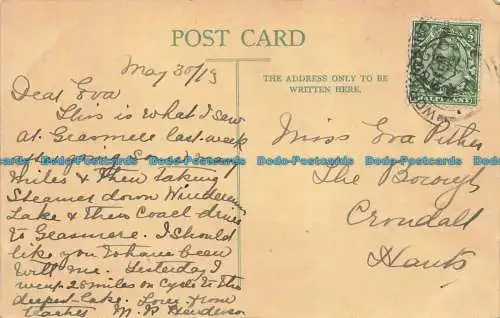 POST CARD
May 30/13
THE ADDRESS ONLY TO BE
WRITTEN HERE.
Dear Eva
This is what I saw
at Grasmere last week
after going some way
miles & then taking
Steamer down Windermere
Lake & then Coach drive
to Grasmere. I should
like you to have been
with me. Yesterday I
went 26 miles on Cycle to the
deepest Lake. Love from
teacher M. P. Henderson
Miss Eva Pither
The Borough
Crondall
Hants
Dado-Postcards Dado-Postcards Dado-Postcards Dado-Postcards